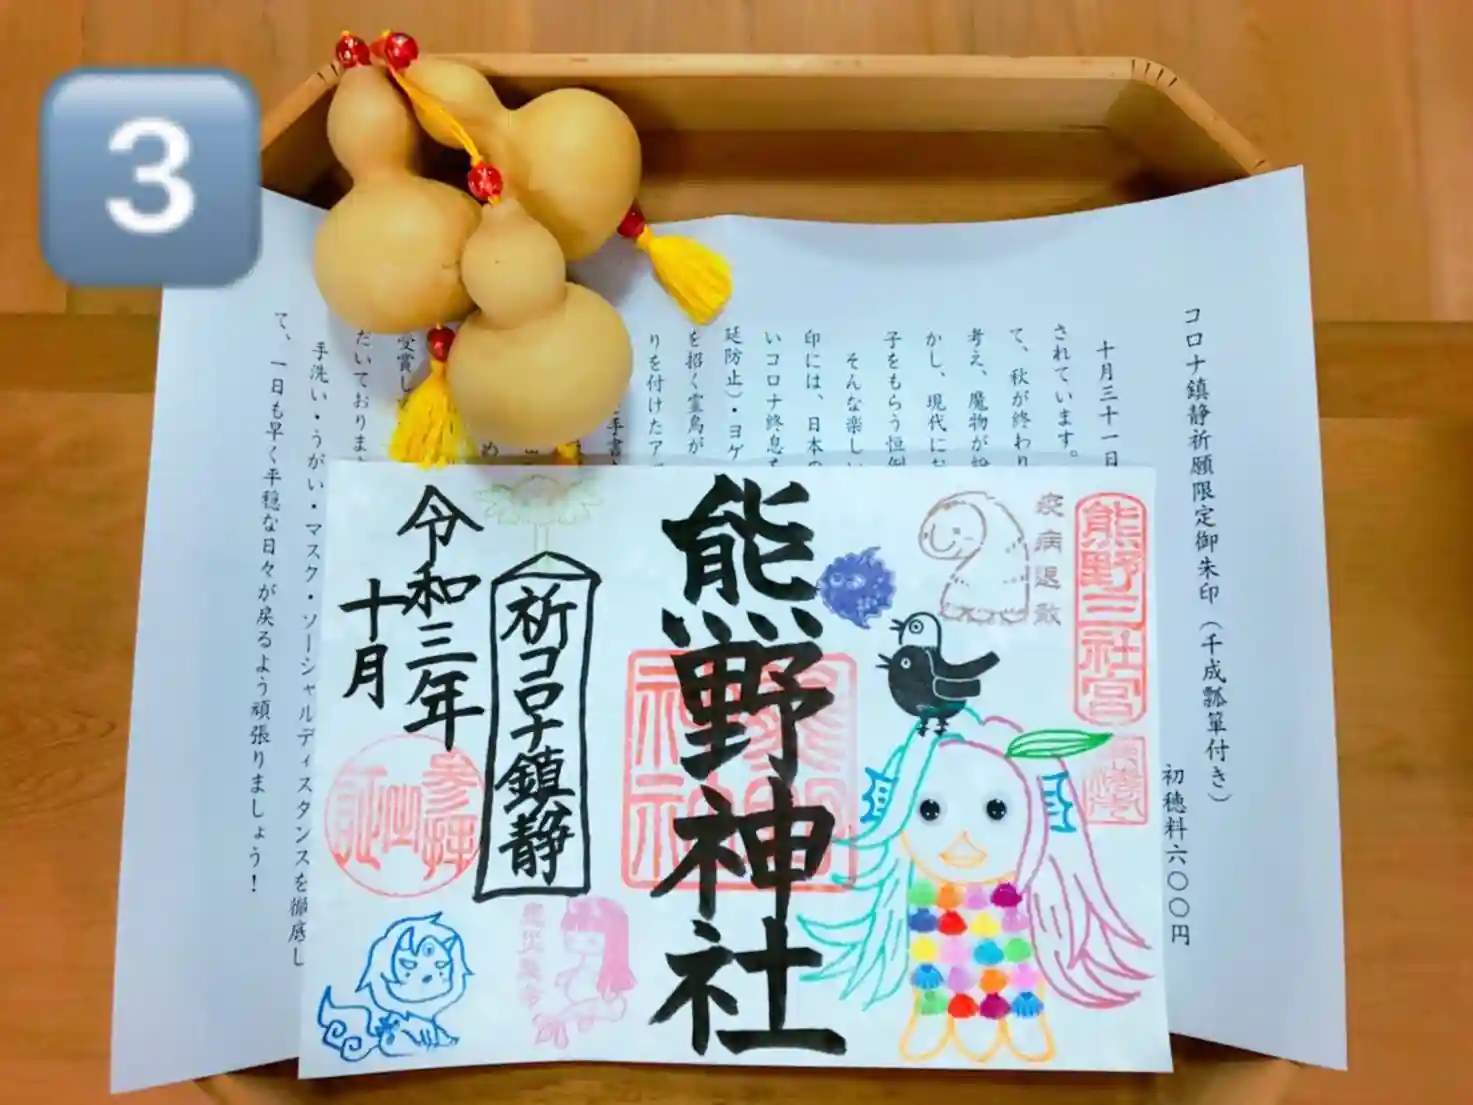 3
コロナ鎮静祈願限定御朱印(千成瓢箪付き)
初穂料六〇〇〇円
十月三十一日
されています。
て、秋が終わり
考え、魔物が
かし、現代にお
子をもらう恒例
そんな楽し
印には、日本の
いコロナ終息を
延防止)・ヨゲ
を招く霊鳥が
りを付けたア
手書
受賞し
だいておりま
手洗い・うがい・マスク・ソーシャルディスタンスを徹底し
て、一日も早く平穏な日々が戻るよう頑張りましょう!
熊野三社宮
疫病退散
熊野神社
祈コロナ鎮静
令和三年
十月
参拝
証